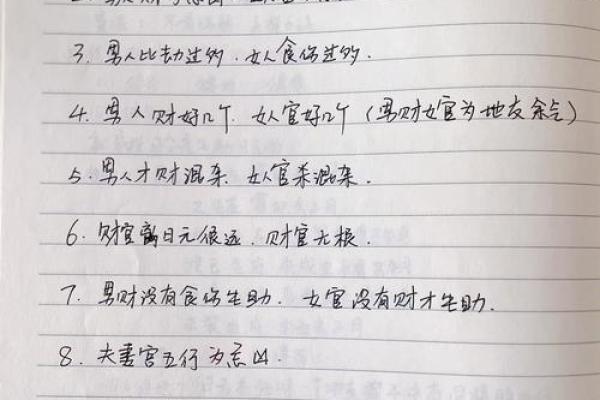 3. 男人比劫过多. 女人食伤过多.
4. 男人财好几个. 女人官好几个 (男财女官为地支余气)
5. 男人才财混杂. 女人官杀混杂.
6. 财官离日元很远. 财官无根.
7. 男财没有食伤生助. 女官没有财才生助.
8. 夫妻宫五行为忌凶.